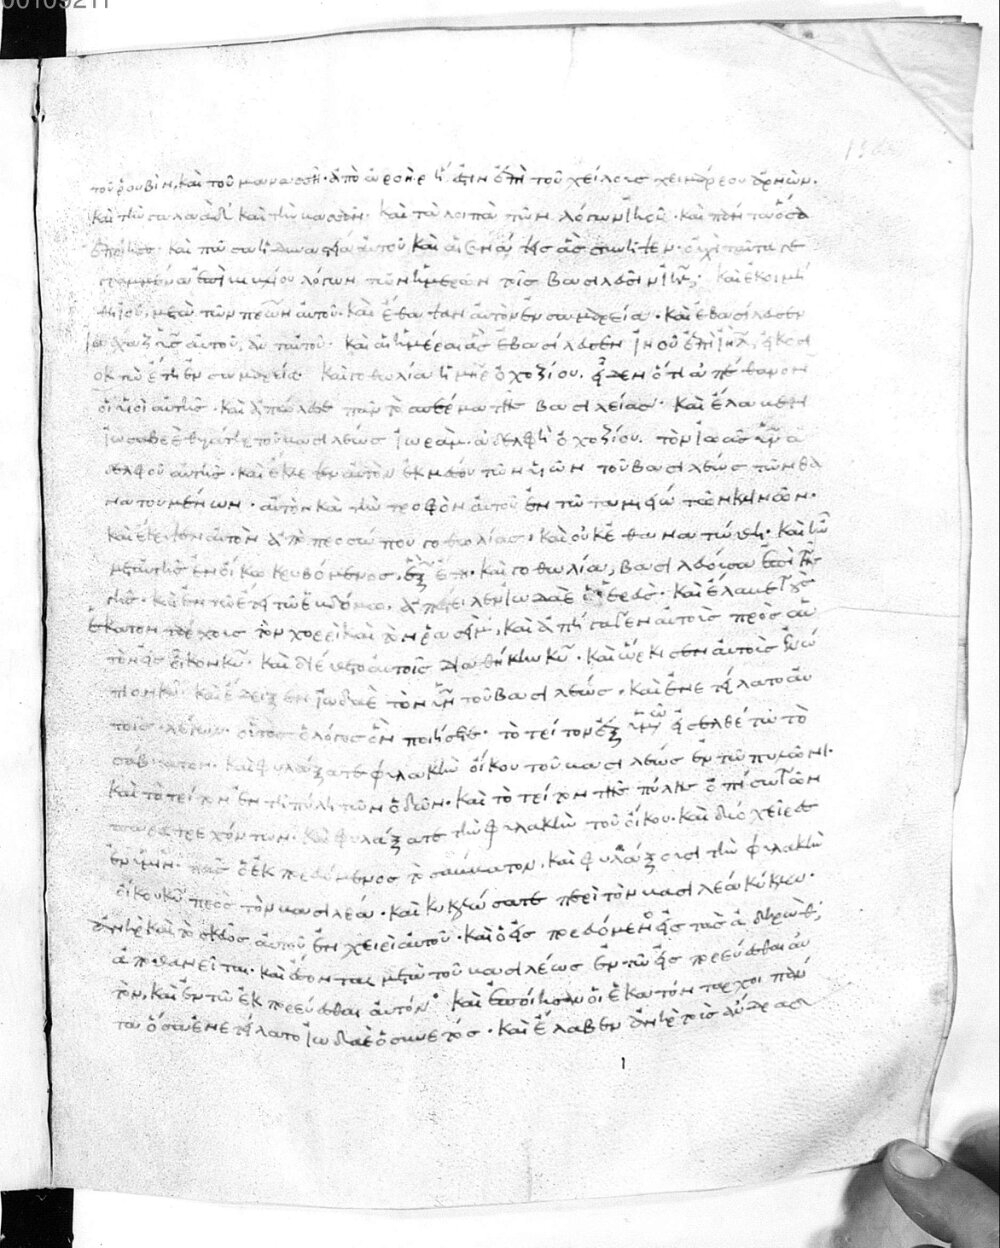 00109211
τοῦ ῥουβὶν, καὶ τοῦ μανασσῆ· ἀπὸ ἀροὴρ ἥ ἐστιν ἐπὶ τοῦ χείλους χειμάρρου ἀρνῶν·
καὶ τὴν γαλαὰδ καὶ τὴν βασὰν· καὶ τὰ λοιπὰ τῶν λόγων ἰηοῦ· καὶ πάντα ὅσα
ἐποίησε· καὶ πᾶσα ἡ δυναστεία αὐτοῦ καὶ αἱ συνάψεις ἃς συνῆψεν· οὐχὶ ταῦτα γε
γραμμένα ἐπὶ βιβλίου λόγων τῶν ἡμερῶν τοῖς βασιλεῦσιν ἰηλ· καὶ ἐκοιμή
θη ἰοῦ, μετὰ τῶν πρων αὐτοῦ· καὶ ἔθαψαν αὐτὸν ἐν σαμαρεία· καὶ ἐβασίλευσεν
ἰωχαζ υἱὸς αὐτοῦ, ἀντ αὐτοῦ· καὶ αἱ ἡμέραι ἃς ἐβασίλευσεν ἰηοῦ ἐπὶ ἰηλ, εἴκοσι
οκτὼ ἔτη ἐν σαμαρεία· καὶ γοθολία ἡ μηρ ὀχοζίου. εἶδεν ὅτι ἀπέθανον
οἱ υἱοὶ αὐτῆς· καὶ ἀπώλεσε πᾶν τὸ σπέρμα τῆς βασιλείας· καὶ ἔλαβεν
ἰωσαβεὲ θυγάτηρ τοῦ βασιλέως ἰωρὰμ· ἀδελφὴ ὀχοζίου. τὸν ἰωὰς υἱὸν ἀ
δελφοῦ αὐτῆς· καὶ ἔκλεψεν αὐτὸν ἐκ μέσου τῶν υἱῶν τοῦ βασιλέως τῶν θα
νατουμένων· αὐτὸν καὶ τὴν τροφὸν αὐτοῦ ἐν τῶ ταμιείω τῶν κλινῶν·
καὶ ἔκρυψεν αὐτὸν ἀπὸ προσώπου γοθολίας· καὶ οὐκ ἐθανατώθη· καὶ ἦν
μεταὐτῆς ἐν οἴκω κρυβόμενος, ἓξ ἔτη· καὶ γοθολία, βασιλεύουσα ἐπὶ τῆς
γῆς· καὶ ἐν τῶ ἔτει τῶ ἑβδόμω, ἀπέστειλεν ἰωδαὲ ὁ ἱερεὺς· καὶ ἔλαβε τοὺς
ἑκατοντάρχους τὸν χορρὶ καὶ τὸν ρασεὶμ, καὶ ἀπήγαγεν αὐτοὺς πρὸς αὑ
τὸν εἰς οἶκον κυ· καὶ διέθετο αὐτοῖς διαθήκην κυ· καὶ ὥρκισεν αὐτοὺς ἐνώ
πιον κυ· καὶ ἔδειξεν ἰωδαὲ τὸν υἱὸν τοῦ βασιλέως· καὶ ἐνετείλατο αὐ
τοῖς λέγων· οὗτος ὁ λόγος ὃν ποιήσετε· τὸ τρίτον ἐξ ὑμῶν εἰσελθέτω τὸ
σάββατον· καὶ φυλάξατε φυλακὴν οἴκου τοῦ βασιλέως ἐν τῶ πυλῶνι·
καὶ τὸ τρίτον ἐν τῇ πύλη τῶν ὁδῶν· καὶ τὸ τρίτον τῆς πύλης ὀπίσω τῶν
παρατρεχόντων· καὶ φυλάξατε τὴν φυλακὴν τοῦ οἴκου· καὶ δύο χεῖρες
ἐν ὑμῖν· πᾶς ὁ ἐκπορευόμενος τὸ σάββατον, καὶ φυλάξουσι τὴν φυλακὴν
οἴκου κυ πρὸς τὸν βασιλέα· καὶ κυκλώσατε περὶ τὸν βασιλέα κύκλω·
ἀνὴρ καὶ τὸ σκεῦος αὐτοῦ ἐν χειρὶ αὐτοῦ· καὶ ὁ εἰσπορευόμενος εἰς τὰς ἀδηρὼθ,
ἀποθανεῖται· καὶ ἔσονται μετὰ τοῦ βασιλέως ἐν τῶ εἰσπορεύεσθαι αὐ
τὸν, καὶ ἐν τῶ ἐκπορεύεσθαι αὐτόν· καὶ ἐποίησαν οἱ ἑκατόνταρχοι πάν
τα ὅσα ἐνετείλατο ἰωδαὲ ὁ συνετός· καὶ ἔλαβεν ἀνὴρ τοὺς ἄνδρας